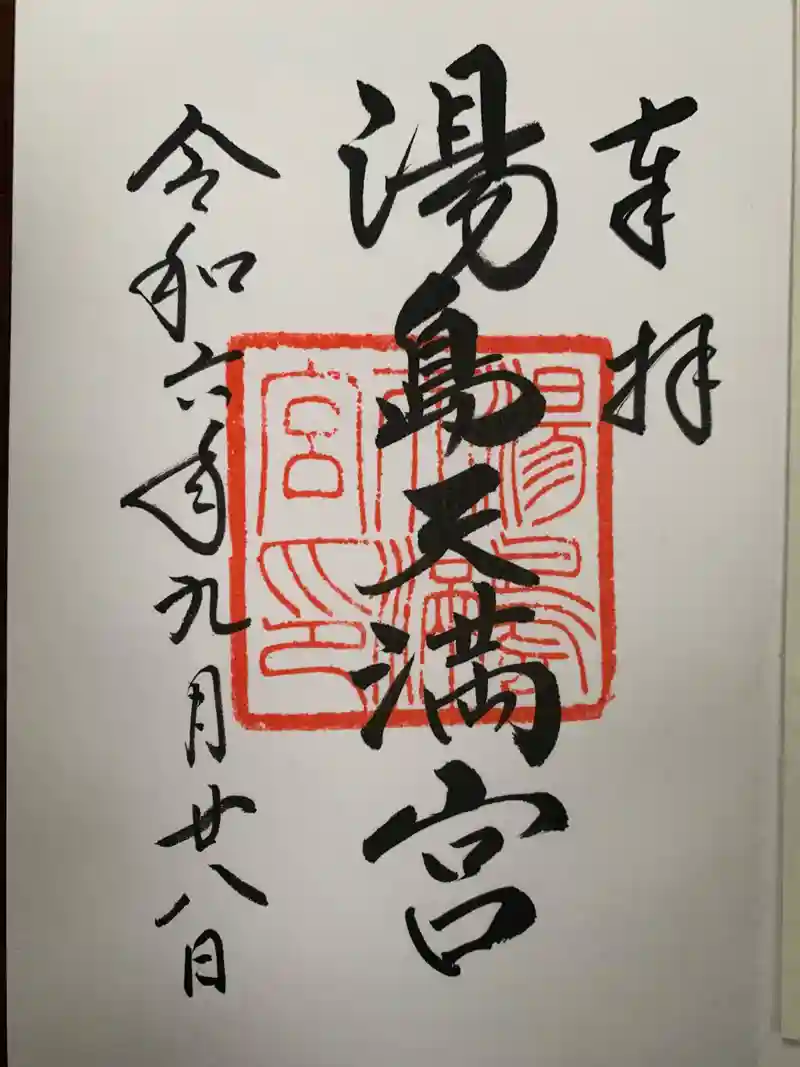 奉拝
湯島天満宮
湯島天満宮印
令和六年九月廿八日